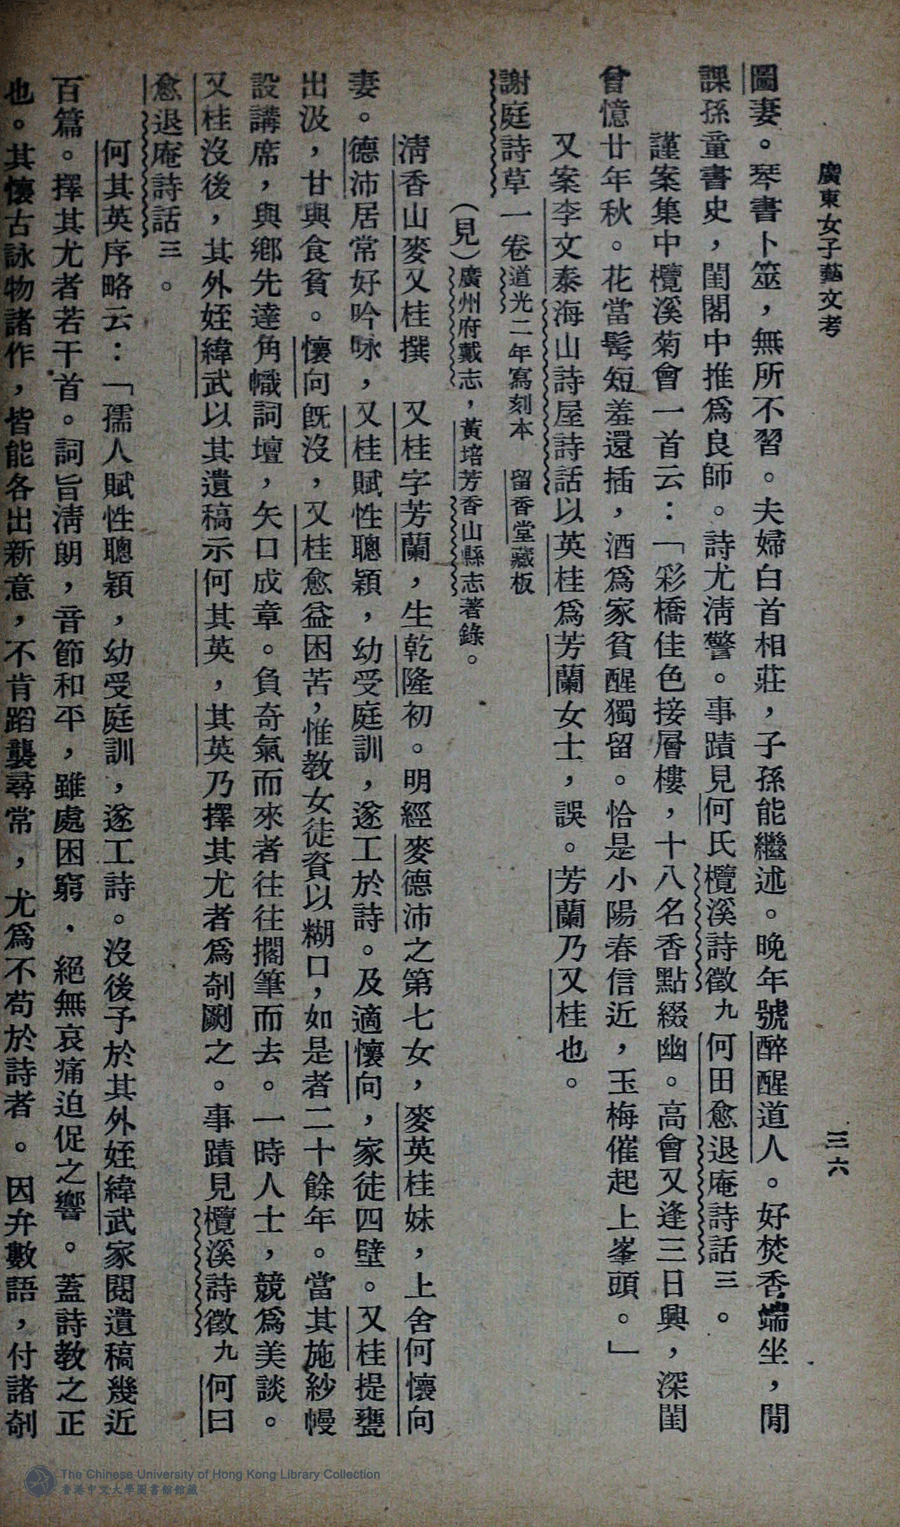 廣東女子藝文考
三六
圖妻。琴書卜筮，無所不習。夫婦白首相莊，子孫能繼述。晚年號醉醒道人。好焚香端坐，閒
課孫童書史，閨閣中推爲良師。詩尤淸警。事蹟見何氏欖溪詩徵九何田愈退庵詩話三。
謹案集中欖溪菊會一首云：「彩橋佳色接層樓，十八名香點綴幽。高會又逢三日興，深閨
曾憶廿年秋。花當髩短羞還插，酒爲家貧醒獨留。恰是小陽春信近，玉梅催起上峯頭。」
又案李文泰海山詩屋詩話以英桂爲芳蘭女士，誤。芳蘭乃又桂也。
謝庭詩草一卷道光二年寫刻本　留香堂藏板
（見）廣州府戴志，黃培芳香山縣志著錄。
淸香山麥又桂撰　又桂字芳蘭，生乾隆初。明經麥德沛之第七女，麥英桂妹，上舍何懷向
妻。德沛居常好吟咏，又桂賦性聰穎，幼受庭訓，遂工於詩。及適懷向，家徒四壁。又桂提甕
出汲，甘與食貧。懷向旣沒，又桂愈益困苦，惟教女徒資以糊口，如是者二十餘年。當其施紗幔
設講席，與鄉先達角幟詞壇，矢口成章。負奇氣而來者往往擱筆而去。一時人士，競爲美談。
又桂沒後，其外姪緯武以其遺稿示何其英，其英乃擇其尤者爲剞劂之。事蹟見欖溪詩徵九何曰
愈退庵詩話三。
何其英序略云：「孺人賦性聰穎，幼受庭訓，遂工詩。沒後予於其外姪緯武家閱遺稿幾近
百篇。擇其尤者若干首。詞旨淸朗，音節和平，雖處困窮．絕無哀痛迫促之響。蓋詩教之正
也。其懷古詠物諸作，皆能各出新意，不肯蹈襲尋常，尤爲不苟於詩者。因弁數語，付諸剞
The Chinese University of Hong Kong Library Collection
香港中文大學圖書館館藏